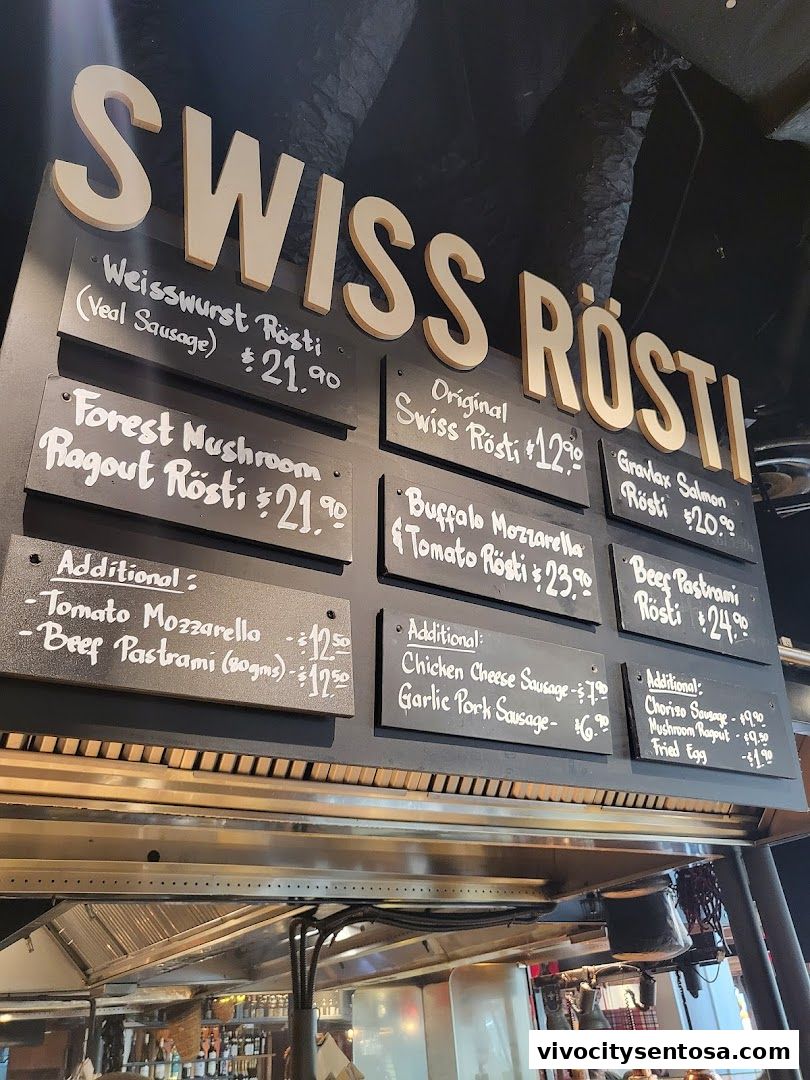 SWISS RÖSTI
Weisswurst Rösti
(Veal Sausage) $21.90
Forest Mushroom
Ragout Rösti $21.90
Additional:
-Tomato Mozzarella -$12.50
-Beef Pastrami (80gms)-$12.50
Original
Swiss Rösti $12.90
Buffalo Mozzarella
& Tomato Rösti $23.90
Additional:
Chicken Cheese Sausage-$7.90
Garlic Pork Sausage- $6.90
Gravlax Salmon
Rösti $20.90
Beef Pastrami
Rösti $24.90
Additional:
Chorizo Sausage - $9.90
Mushroom Ragout - $9.50
Fried Egg -$1.90
vivocitysentosa.com